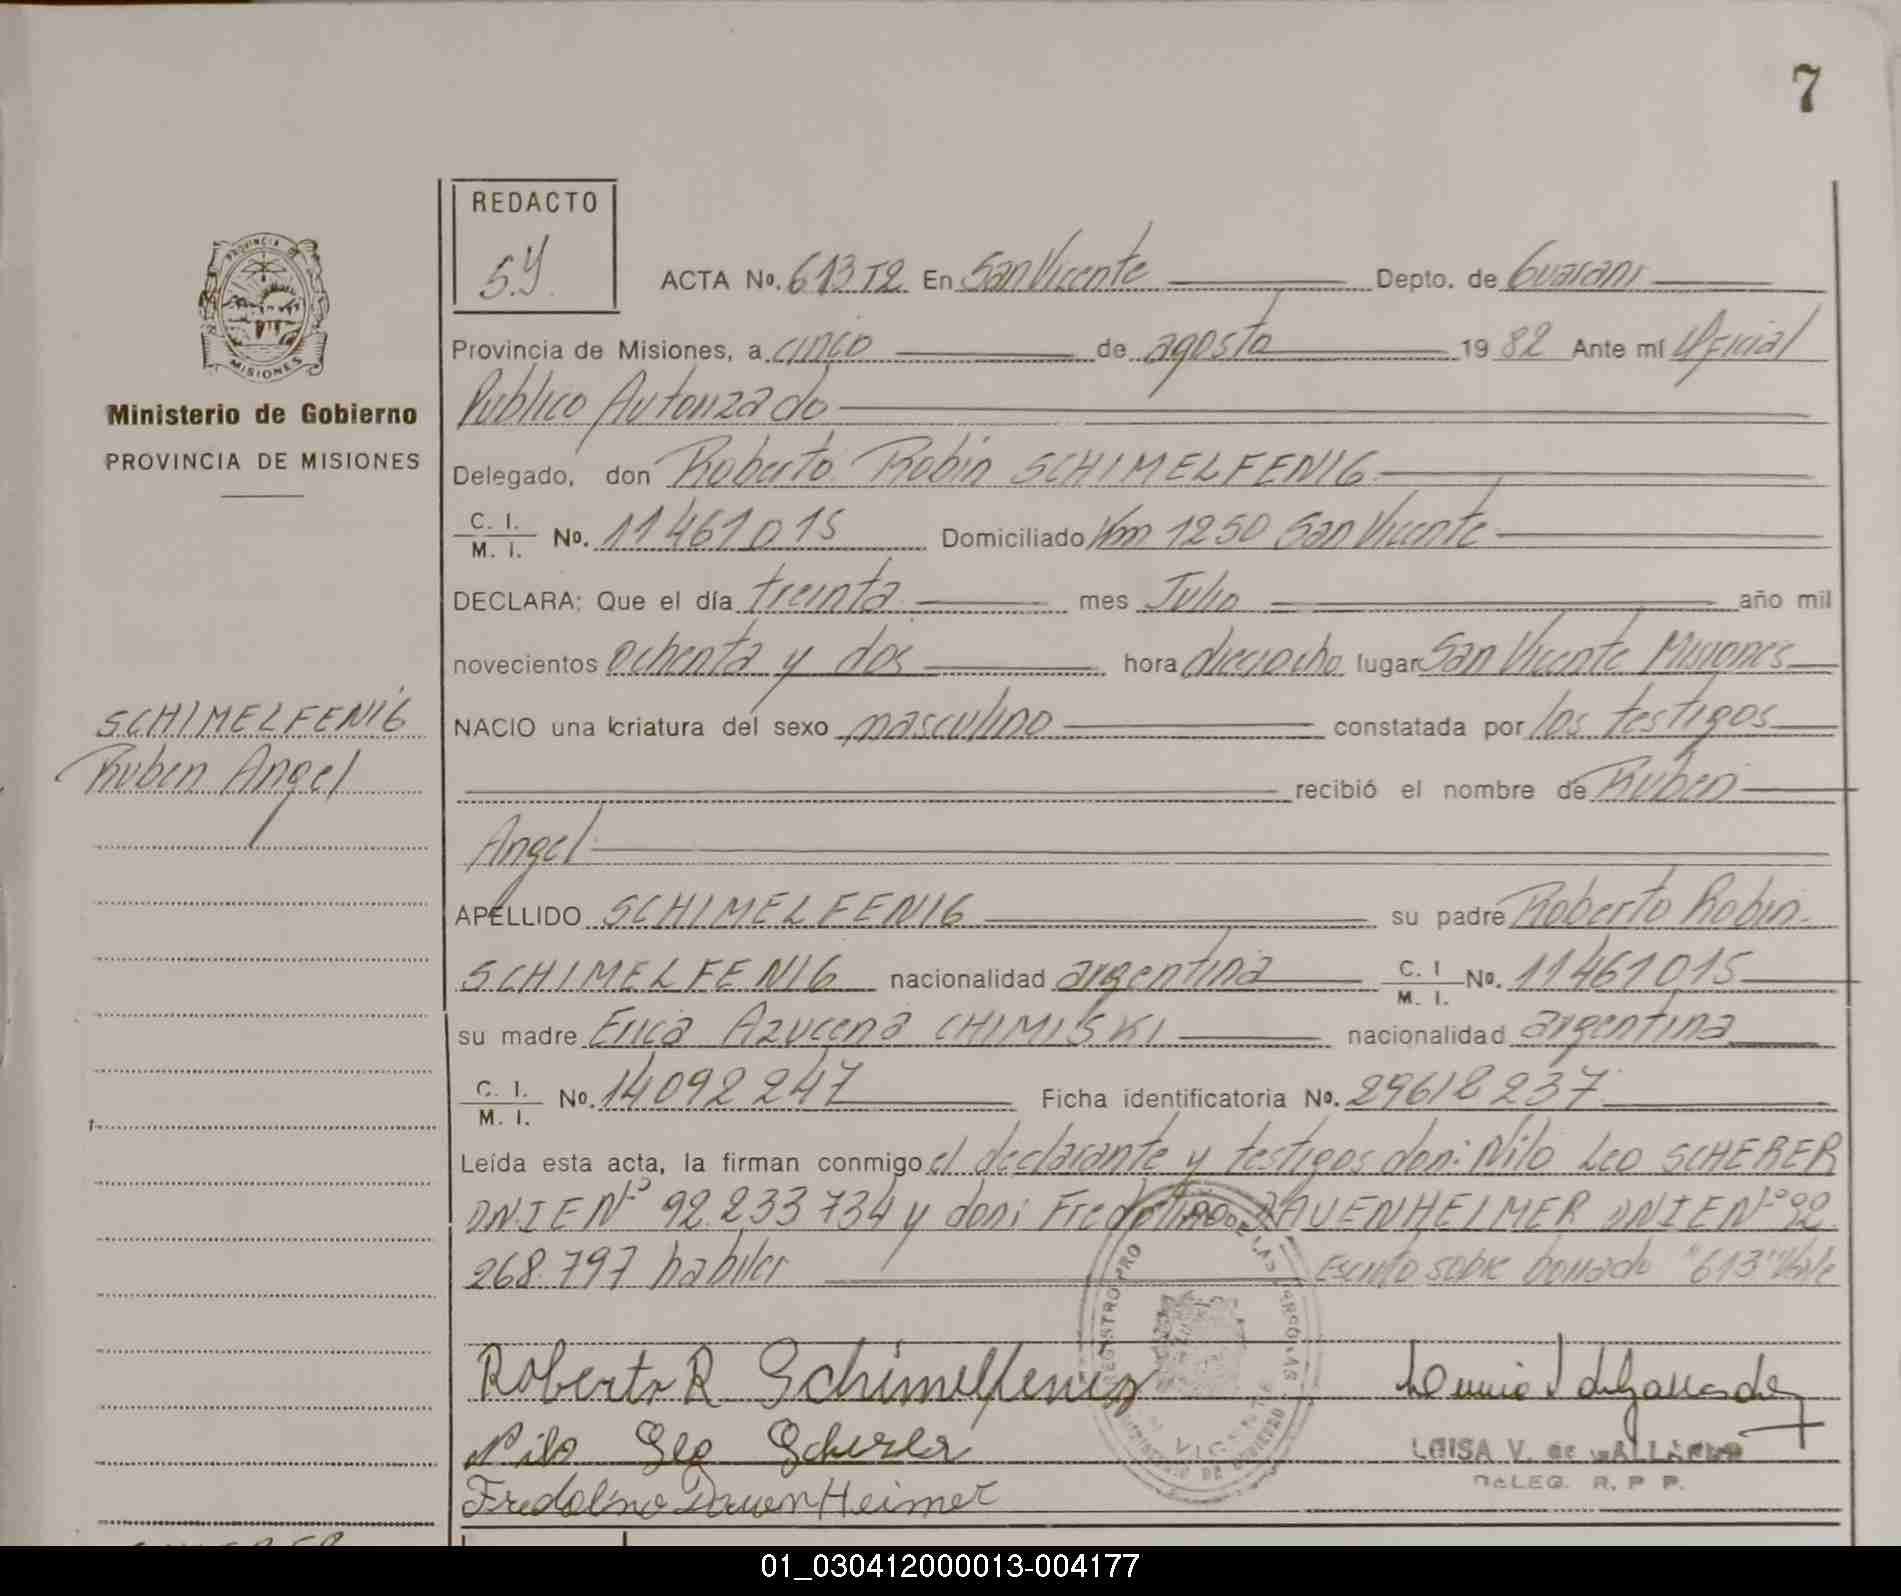 7
REDACTO
S.Y.
ACTA No. 613 T2 En San Vicente Depto. de Guarani
PROVINCIA
MISIONES
Provincia de Misiones, a cinco de agosto 1982 Ante mí Oficial
Publico Autorizado
Ministerio de Gobierno
PROVINCIA DE MISIONES
Delegado, don Roberto Robin SCHIMELFENIG
C. I.
M. I. No. 11461015 Domiciliado Km 1250 San Vicente
DECLARA: Que el día treinta mes Julio año mil
novecientos ochenta y dos hora dieciocho lugar San Vicente Misiones
SCHIMELFENIG
Ruben Angel
NACIO una criatura del sexo masculino constatada por los testigos
recibió el nombre de Ruben
Angel
APELLIDO SCHIMELFENIG su padre Roberto Robin
SCHIMELFENIG nacionalidad argentina C. I. M. I. No. 11461015
su madre Erica Azucena CHIMISKI nacionalidad argentina
C. I.
M. I. No. 14092247 Ficha identificatoria No. 29618237
Leída esta acta, la firman conmigo el declarante y testigos don: Nilo Leo SCHERER
DNIE Nº 92.233734 y don: Fredolino DAUENHEIMER DNIE Nº 92
268.797 habiles Escrito sobre borrado "613" Vale
Roberto R Schimelfenig
Nilo Leo Scherer
Fredolino DauenHeimer
LUISA V. de GALLARDO
DELEG. R. P. P.
01_030412000013-004177